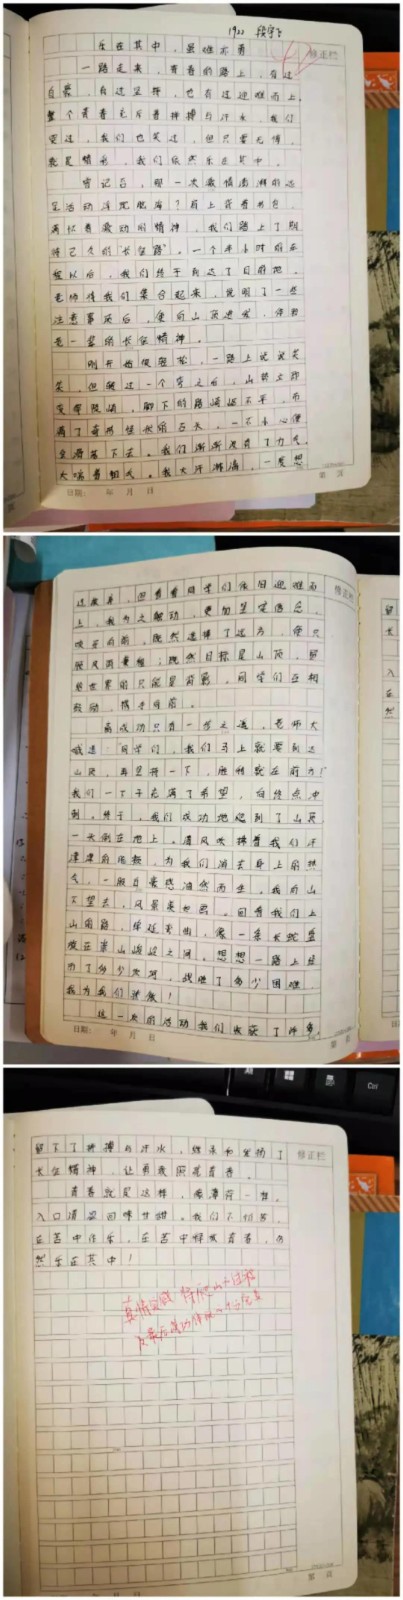 1922
乐在其中,虽难亦勇
修正栏
一路走来,青春的路上,有过
自豪,有过坚持,也有过迎难而上。
整个青春充斥着拼搏与汗水,我们
哭过,我们也笑过,但只要无悔,
就是精彩,我们依然乐在其中。
曾记否,那一次激情澎湃的远
足活动
肩上背着书包,
满怀着激动的精神,我们踏上了期
待已久的“长征路”。一个半小时的车
程以后,我们终于到达了目的地。
老师待我们集合起来,说明了一些
注意事项后,便向山顶进发,体验
老一辈的长征精神。
刚开始很轻松,一路上说说笑
笑,但翻过一个弯之后,山势立即
变得陡峭,脚下的路崎岖不平,布
满了奇形怪状的石头,一不小心便
会滑落下去。我们渐渐没有了力气,
大喘着粗气。我大汗淋漓,一度想
日期: 年 月 日
第 页
过放弃,但看着同学们依旧迎难而
上,我为之触动,更加坚定信念,
咬牙向前。既然选择了远方,便只
顾风雨兼程;既然目标是山顶,留
给世界的只能是背影。同学们互相
鼓励,携手向前。
离成功只有一步之遥,老师大
喊道:“同学们,我们马上就要到达
山顶,再坚持一下,胜利就在前方!”
我们一下子充满了希望,向终点冲
刺。终于,我们成功地爬到了山顶,
一头倒在地上。清风吹拂着我们汗
津津的面颊,为我们消去身上的热
气,一股自豪感油然而生。我向山
下望去,风景美如画。回看我们上
山的路,绵延弯曲,像一条长蛇盘
旋在崇山峻岭之间。想想一路上经
历了多少坎坷,战胜了多少困难,
我为我们骄傲!
这一次的活动我们收获了许多,
日期: 年 月 日
修正栏
留下了拼搏与汗水,继承和发扬了
长征精神,让勇敢照亮青春。
青春就是这样,像薄荷一样,
入口清凉回味甘甜。我们不惧苦,
在苦中作乐,在苦中释放青春,仍
然乐在其中!
真情实感
修正栏
第 页
Ctrl